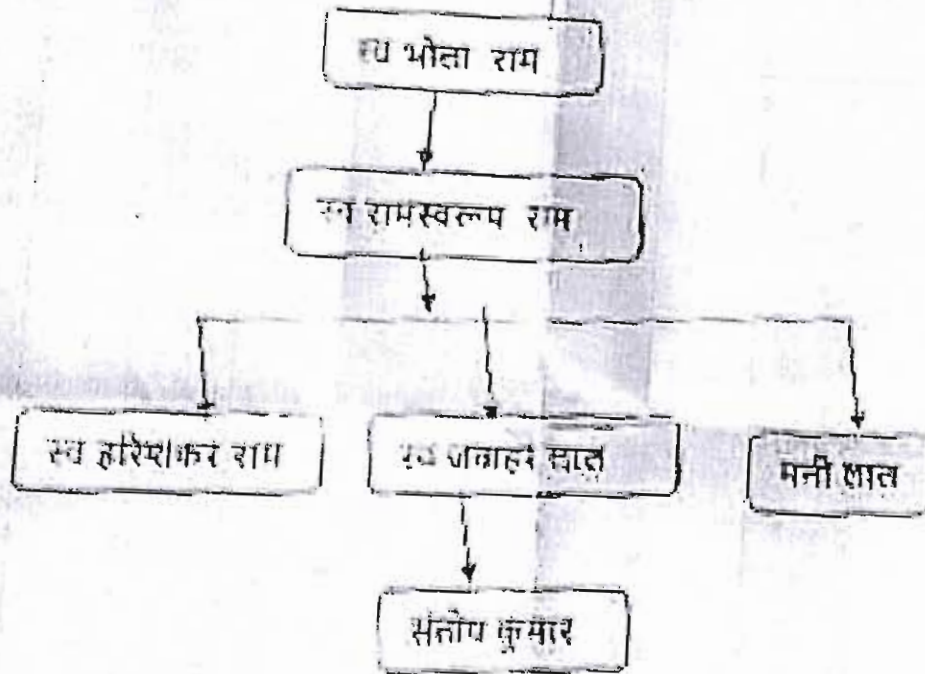 स्व भोला राम
स्व रामस्वरूप राम
स्व हरिशंकर राम
स्व जवाहर लाल
मनी लाल
संतोष कुमार